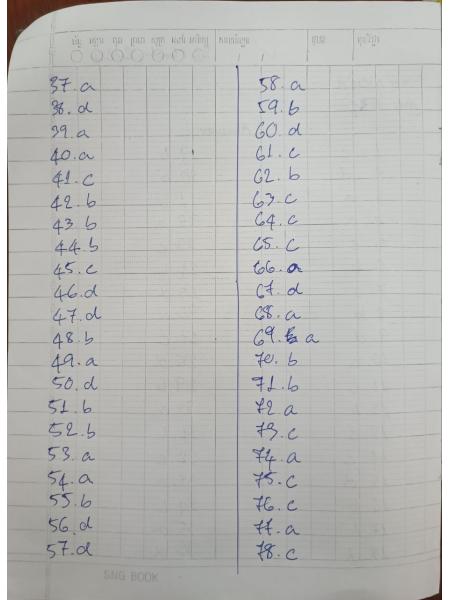 37. a
38. d
39. a
40. a
41. c
42. b
43 b
44. b
45. c
46. d
47. d
48. b
49. a
50. d
51. b
52. b
53. a
54. a
55. b
56. d
57. d
58. a
59. b
60. d
61. c
62. b
63. c
64. c
65. c
66. a
67. d
68. a
69. a
70. b
71. b
72 a
73. c
74. a
75. c
76. c
77. a
78. c
SNG BOOK